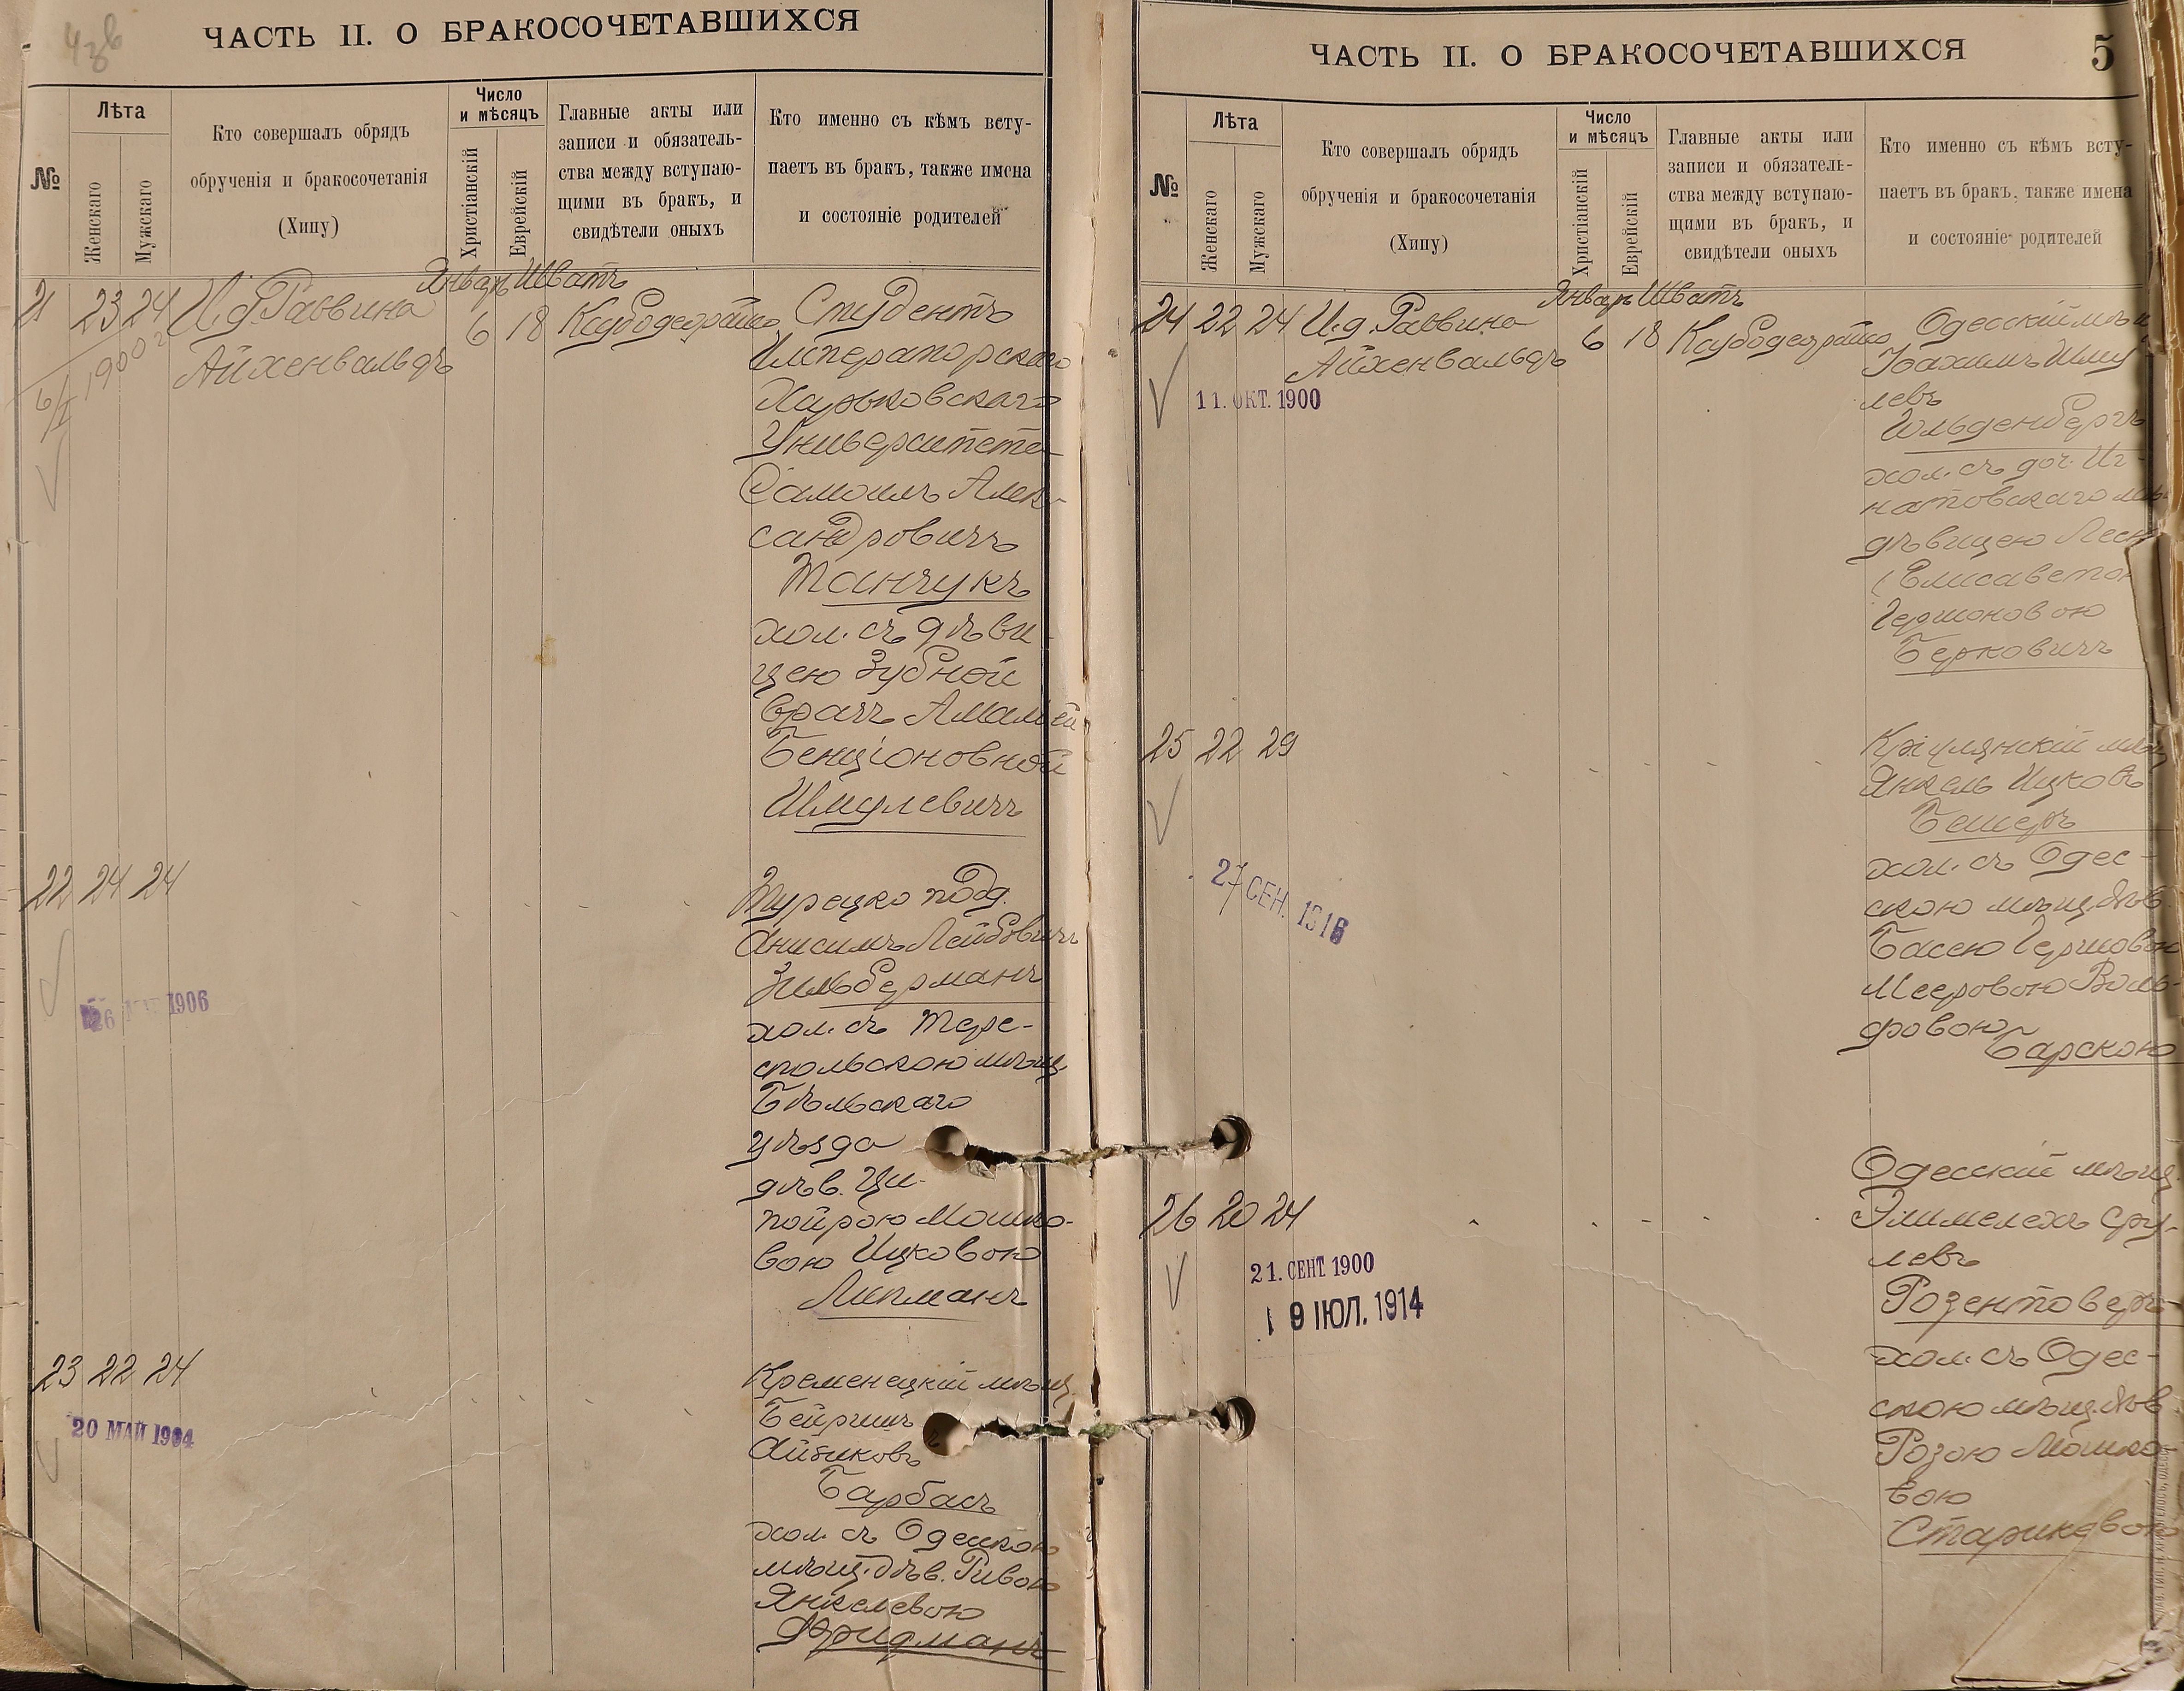 ЧАСТЬ II. О БРАКОСОЧЕТАВШИХСЯ
№
Лѣта
Женскаго
Мужскаго
Кто совершалъ обрядъ
обрученія и бракосочетанія
(Хипу)
Число
и мѣсяцъ
Христіанскій
Еврейскій
Главные акты или
записи и обязатель-
ства между вступаю-
щими въ бракъ, и
свидѣтели оныхъ
Кто именно съ кѣмъ всту-
паетъ въ бракъ, также имена
и состояніе родителей
Январь Шватъ
21 23 24 И.д. Раввина 6 18
Айхенвальдъ
6/I 1900
Студентъ
Императорскаго
Харьковскаго
Университета
Самоилъ Алек-
сандровичъ
Танчукъ
хол. съ дѣви-
цею Зубной
врачъ Амаліей
Бенціоновной
Шмулевичъ
22 24 24
1906
Турецко под.
Анисимъ Лейбовичъ
Зильберманъ
хол. съ Тере-
спольскою мѣщ.
Бѣльскаго
уѣзда
дѣв. Ци-
пойрою Мошко-
вою Ицковою
Липманъ
23 22 24
20 МАЙ 1904
Кременецкій мѣщ.
Бейришъ
Айзиковъ
Барбасъ
хол. съ Одесскою
мѣщ. дѣв. Ривою
Янкелевою
Фридманъ
ЧАСТЬ II. О БРАКОСОЧЕТАВШИХСЯ
5
№
Лѣта
Женскаго
Мужскаго
Кто совершалъ обрядъ
обрученія и бракосочетанія
(Хипу)
Число
и мѣсяцъ
Христіанскій
Еврейскій
Главные акты или
записи и обязатель-
ства между вступаю-
щими въ бракъ, и
свидѣтели оныхъ
Кто именно съ кѣмъ всту-
паетъ въ бракъ, также имена
и состояніе родителей
Январь Шватъ
24 22 24 И.д. Раввина 6 18
Айхенвальдъ
11. ОКТ. 1900
Одесскій
Іоахимъ Шму-
левъ
Гольденбергъ
хол. съ доч. Иг-
натовскаго
дѣвицею
(Елисаветою
Гершоновою
Берковичъ
25 22 29
27 СЕН. 1916
Янкель Ицковъ
Бешеръ
хол. съ Одес-
скою мѣщ. дѣв.
Басею Гершовою
Мееровою Воль-
фовою
Барскою
26 20 24
21. СЕНТ. 1900
9 ІЮЛ. 1914
Одесскій мѣщ.
Элимелехъ Сру-
левъ
хол. съ Одес-
скою мѣщ. дѣв.
Розою Мошко-
вою
Стариковою